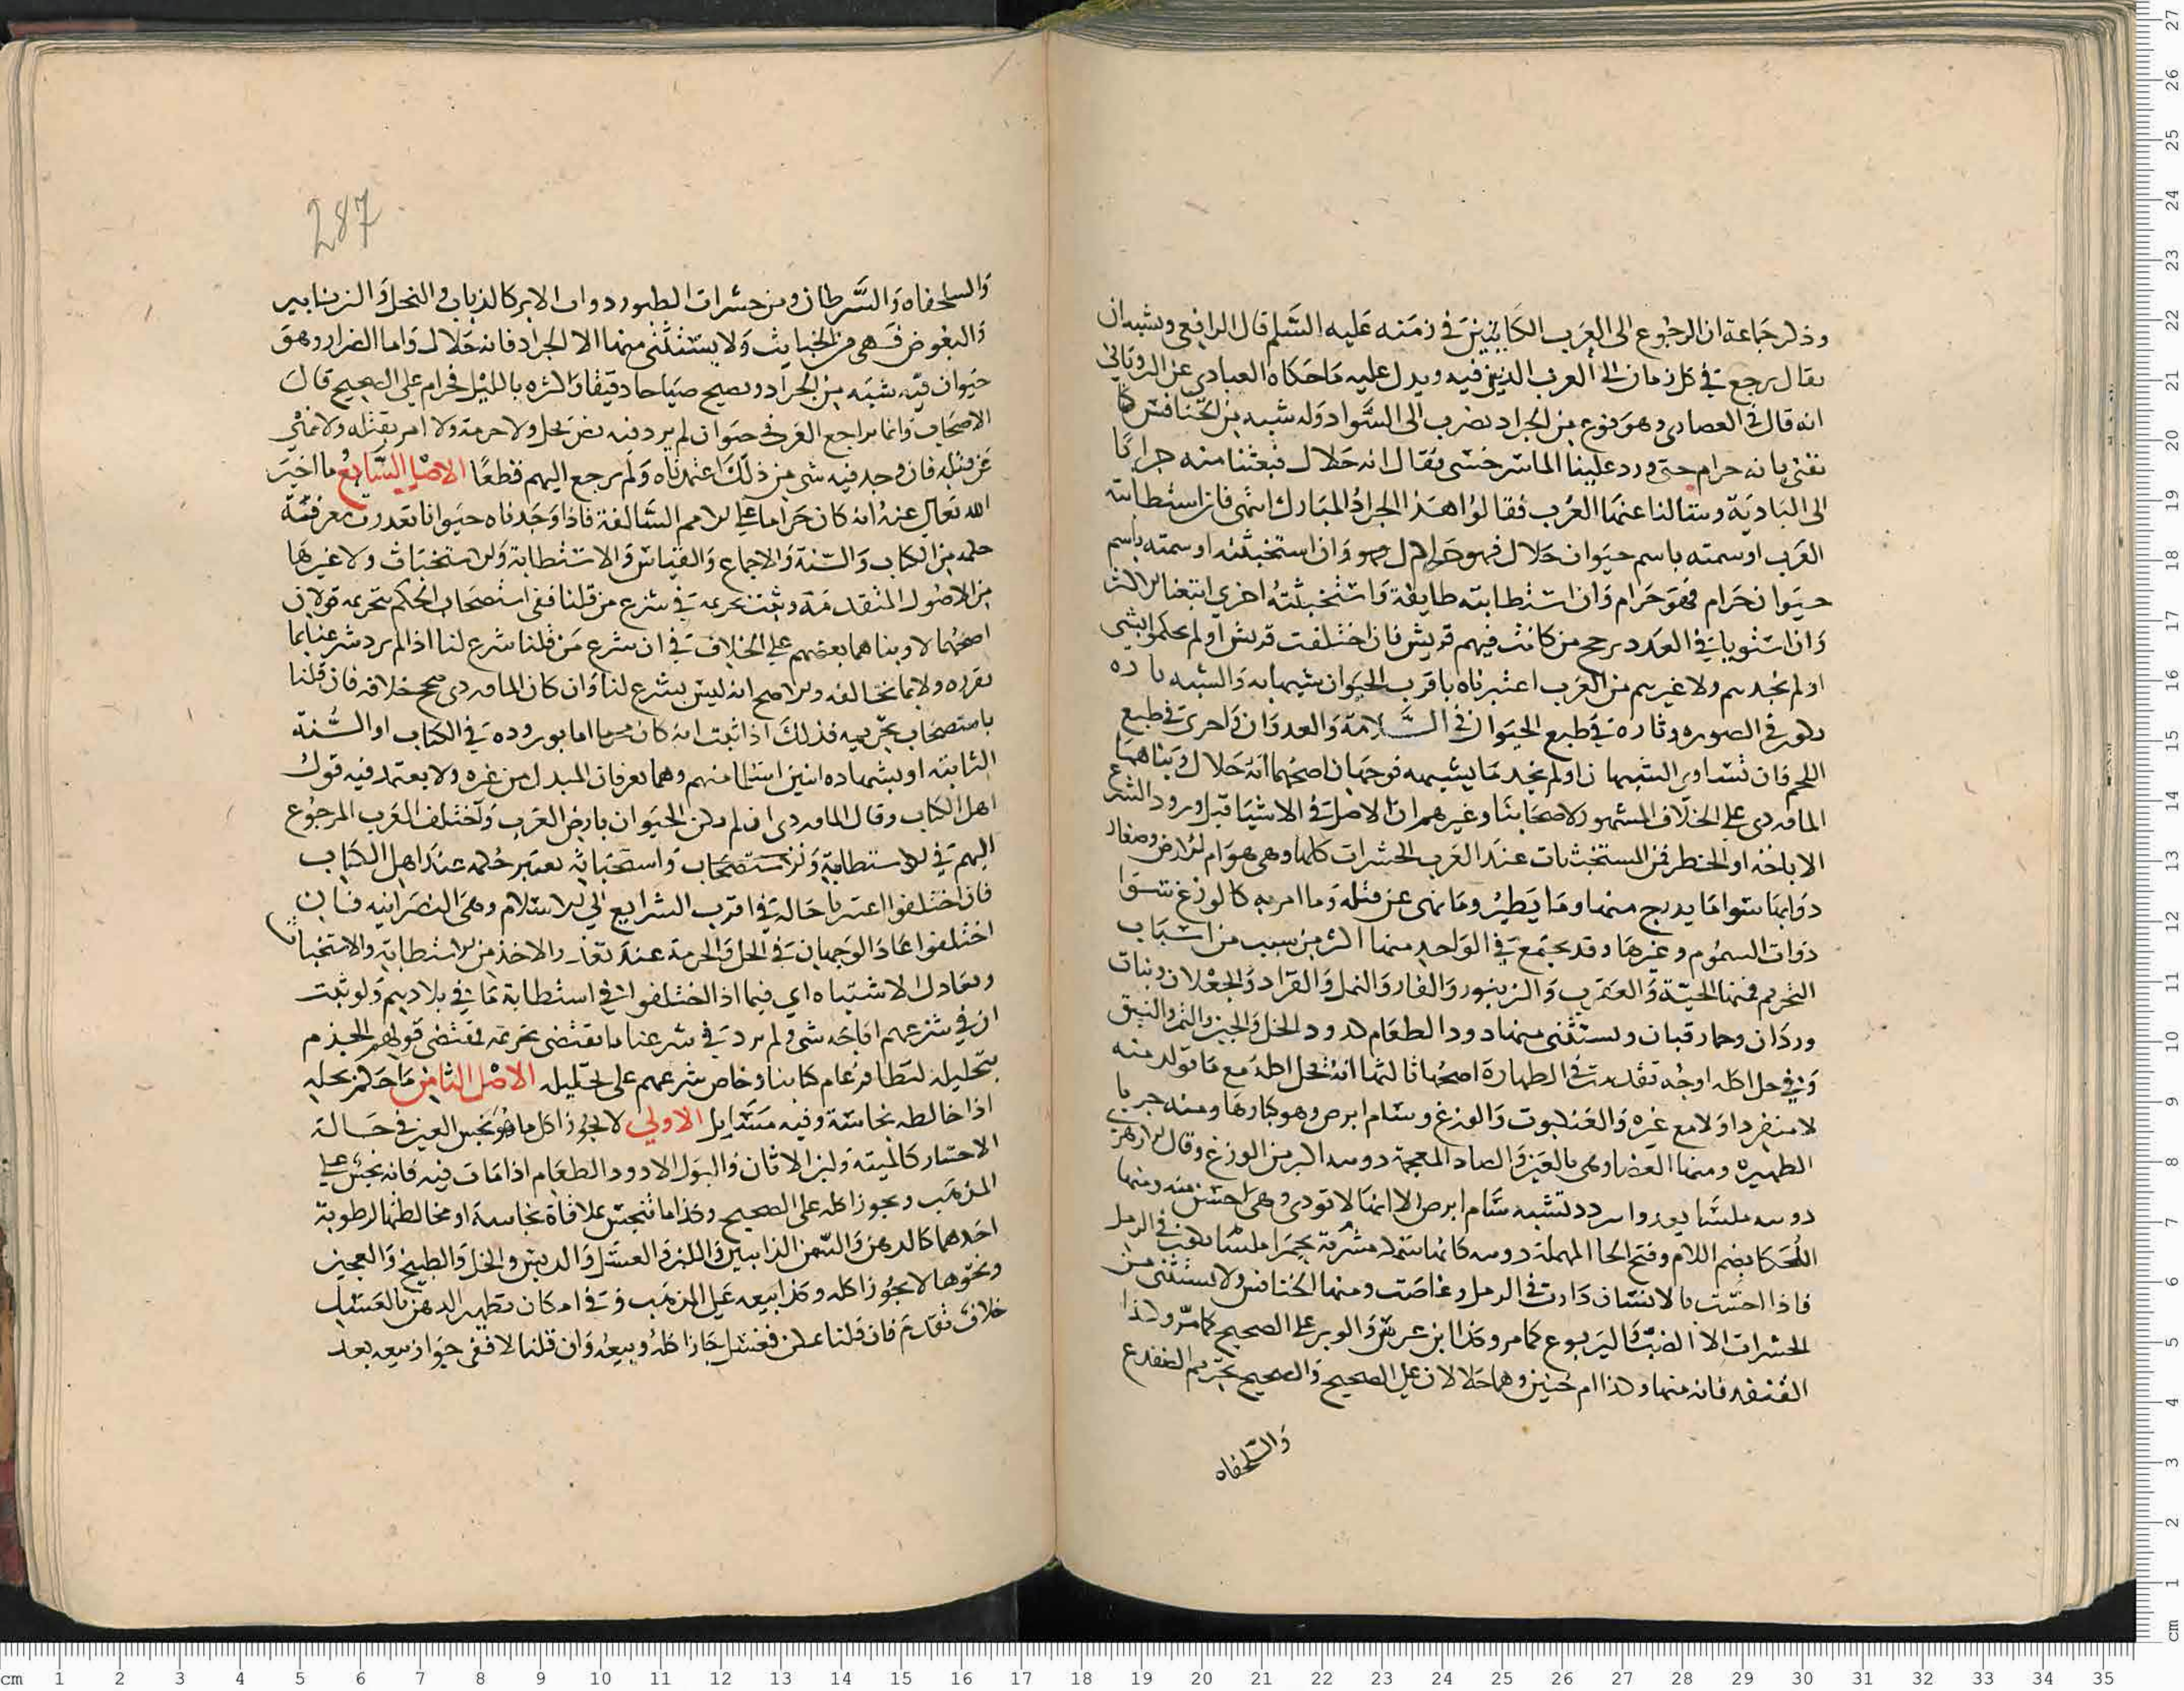 وذكر جماعة ان الرجوع الى العرب الكائنين في زمنه عليه السلم قال الرافعي ويشبه ان
يقال يرجع في كل زمان الى العرب الذين فيه ويدل عليه ما حكاه العبادي عن الروياني
انه قال في العصاري وهو نوع من الجراد يضرب الى السواد وله شبه من الخنافس كنا
نفتي بانه حرام حتى ورد علينا الماسرخسي فقال انه حلال فبعثنا منه جرابا
الى البادية وسالنا عنها العرب فقالوا هذا الجراد المبارك انتهى فان استطابته
العرب او سمته باسم حيوان حلال فهو حلال وان استخبثته او سمته باسم
حيوان حرام فهو حرام وان استطابته طايفة واستخبثته اخرى اتبعنا الاكثر
وان استويا في العدد رجح من كانت فيهم قريش فان اختلفت قريش او لم يحكموا بشي
او لم نجدهم ولا غيرهم من العرب اعتبرناه باقرب الحيوان شبها به والشبه تارة
يكون في الصورة وتارة في طبع الحيوان في السلامة والعدوان واخرى في طبع
اللحم فان تساوى الشبهان او لم نجد ما يشبهه فوجهان اصحهما انه حلال وبناهما
الماوردي على الخلاف المشهور لاصحابنا وغيرهم ان الاصل في الاشيا قبل ورود الشرع
الاباحة او الحظر فمن المستخبثات عند العرب الحشرات كلها وهي هوام الارض وصغار
دوابها سوا ما يدرج منها وما يطير وما نهى عن قتله وما امر به كالوزغ
ذوات السموم وغيرها وقد يجتمع في الواحد منها اكثر من سبب من اسباب
التحريم فمنها الحية والعقرب والزنبور والفار والنمل والقراد والجعلان وبنات
وردان وحمار قبان ويستثنى منها دود الطعام كدود الخل والجبن والتمر والنبق
وفي حل اكله اوجه تقدمت في الطهارة اصحها ثالثها انه يحل اكله مع ما تولد منه
لا منفردا ولا مع غيره والعنكبوت والوزغ وسام ابرص وهو كبارها ومنه حربا
الظهيرة ومنها العضا وهي بالعين والضاد المعجمة دويبة اكبر من الوزغ وقال الازهري
دويبة ملسا تعدوا تشبه سام ابرص الا انها لا تودي وهي احسن منه ومنها
اللحكا بضم اللام وفتح الحا المهملة دويبة كانها سمكة مشربة بحمرا ملسا تكون في الرمل
فاذا احست بالانسان دارت في الرمل وغاصت ومنها الخنافس ولا يستثنى من
الحشرات الا الضب واليربوع كما مر وكذا ابن عرس والوبر على الصحيح كما مر وكذا
القنفد فانه منها وكذا ام حبين وهما حلالان على الصحيح والصحيح تحريم الضفدع
والسلحفاه
287
والسلحفاه والسرطان ومن حشرات الطيور ذوات الابر كالذباب والنحل والزنابير
والبعوض فهي من الخبايث ولا يستثنى منها الا الجراد فانه حلال واما الصرار وهو
حيوان فيه شبه من الجراد ويصيح صياحا دقيقا واكثره بالليل فحرام على الصحيح قال
الاصحاب وانما يراجع العرب في حيوان لم يرد فيه نص بحل ولا حرمة ولا امر بقتله ولا نهي
عن قتله فان وجد فيه شي من ذلك اعتمدناه ولم يرجع اليهم قطعا الاصل السابع ما اخبر
الله تعالى عنه انه كان حراما على الامم السالفة فاذا وجدنا حيوانا تعذرت معرفة
حكمه من الكتاب والسنة والاجماع والقياس والاستطابة والاستخباث ولا غيرها
من الاصول المتقدمة وثبت تحريمه في شرع من قبلنا ففي استصحاب الحكم بتحريمه قولان
اصحهما لا وبناهما بعضهم على الخلاف في ان شرع من قبلنا شرع لنا اذا لم يرد شرعنا بما
يقرره ولا بما يخالفه والاصح انه ليس بشرع لنا وان كان الماوردي صحح خلافه فان قلنا
باستصحاب تحريمه فذلك اذا ثبت انه كان حراما اما بوروده في الكتاب او السنة
الثابته او بشهادة اثنين اسلما منهم وهما يعرفان المبدل من غيره ولا يعتمد فيه قول
اهل الكتاب وقال الماوردي ان لم يكن الحيوان بارض العرب واختلف العرب المرجوع
اليهم في الاستطابة والاستصحاب واستخباثه يعتبر حكمه عند اهل الكتاب
فان اختلفوا اعتبرنا حاله في اقرب الشرايع الى الاسلام وهي النصرانيه فان
اختلفوا عاد الوجهان في الحل والحرمة عند تعذر الاخذ من الاستطابة والاستخباث
وتعادل الاشتباه اي فيما اذا اختلفوا في استطابة ما في بلادهم ولو ثبت
ان في شرعهم اباحة شي ولم يرد في شرعنا ما يقتضي تحريمه فمقتضى قولهم الجذم
بتحليله لتظافر عام كتابنا وخاص شرعهم على تحليله الاصل الثامن ما حكم بحله
اذا خالطه نجاسة وفيه مسايل الاولى لا يجوز اكل ما هو نجس العين في حالة
الاختيار كالميتة ولبن الاتان والبول الا دود الطعام اذا مات فيه فانه نجس على
المذهب ويجوز اكله على الصحيح وكذا ما تنجس بملاقاة نجاسة او مخالطتها لرطوبة
احدهما كالدهن والسمن الذايبين واللبن والعسل والدبس والخل والطبيخ والعجين
ونحوها لا يجوز اكله وكذا بيعه على المذهب وفي امكان تطهير الدهن بالغسل
خلاف تقدم فان قلنا يمكن فغسل جاز اكله وبيعه وان قلنا لا ففي جواز بيعه بعد